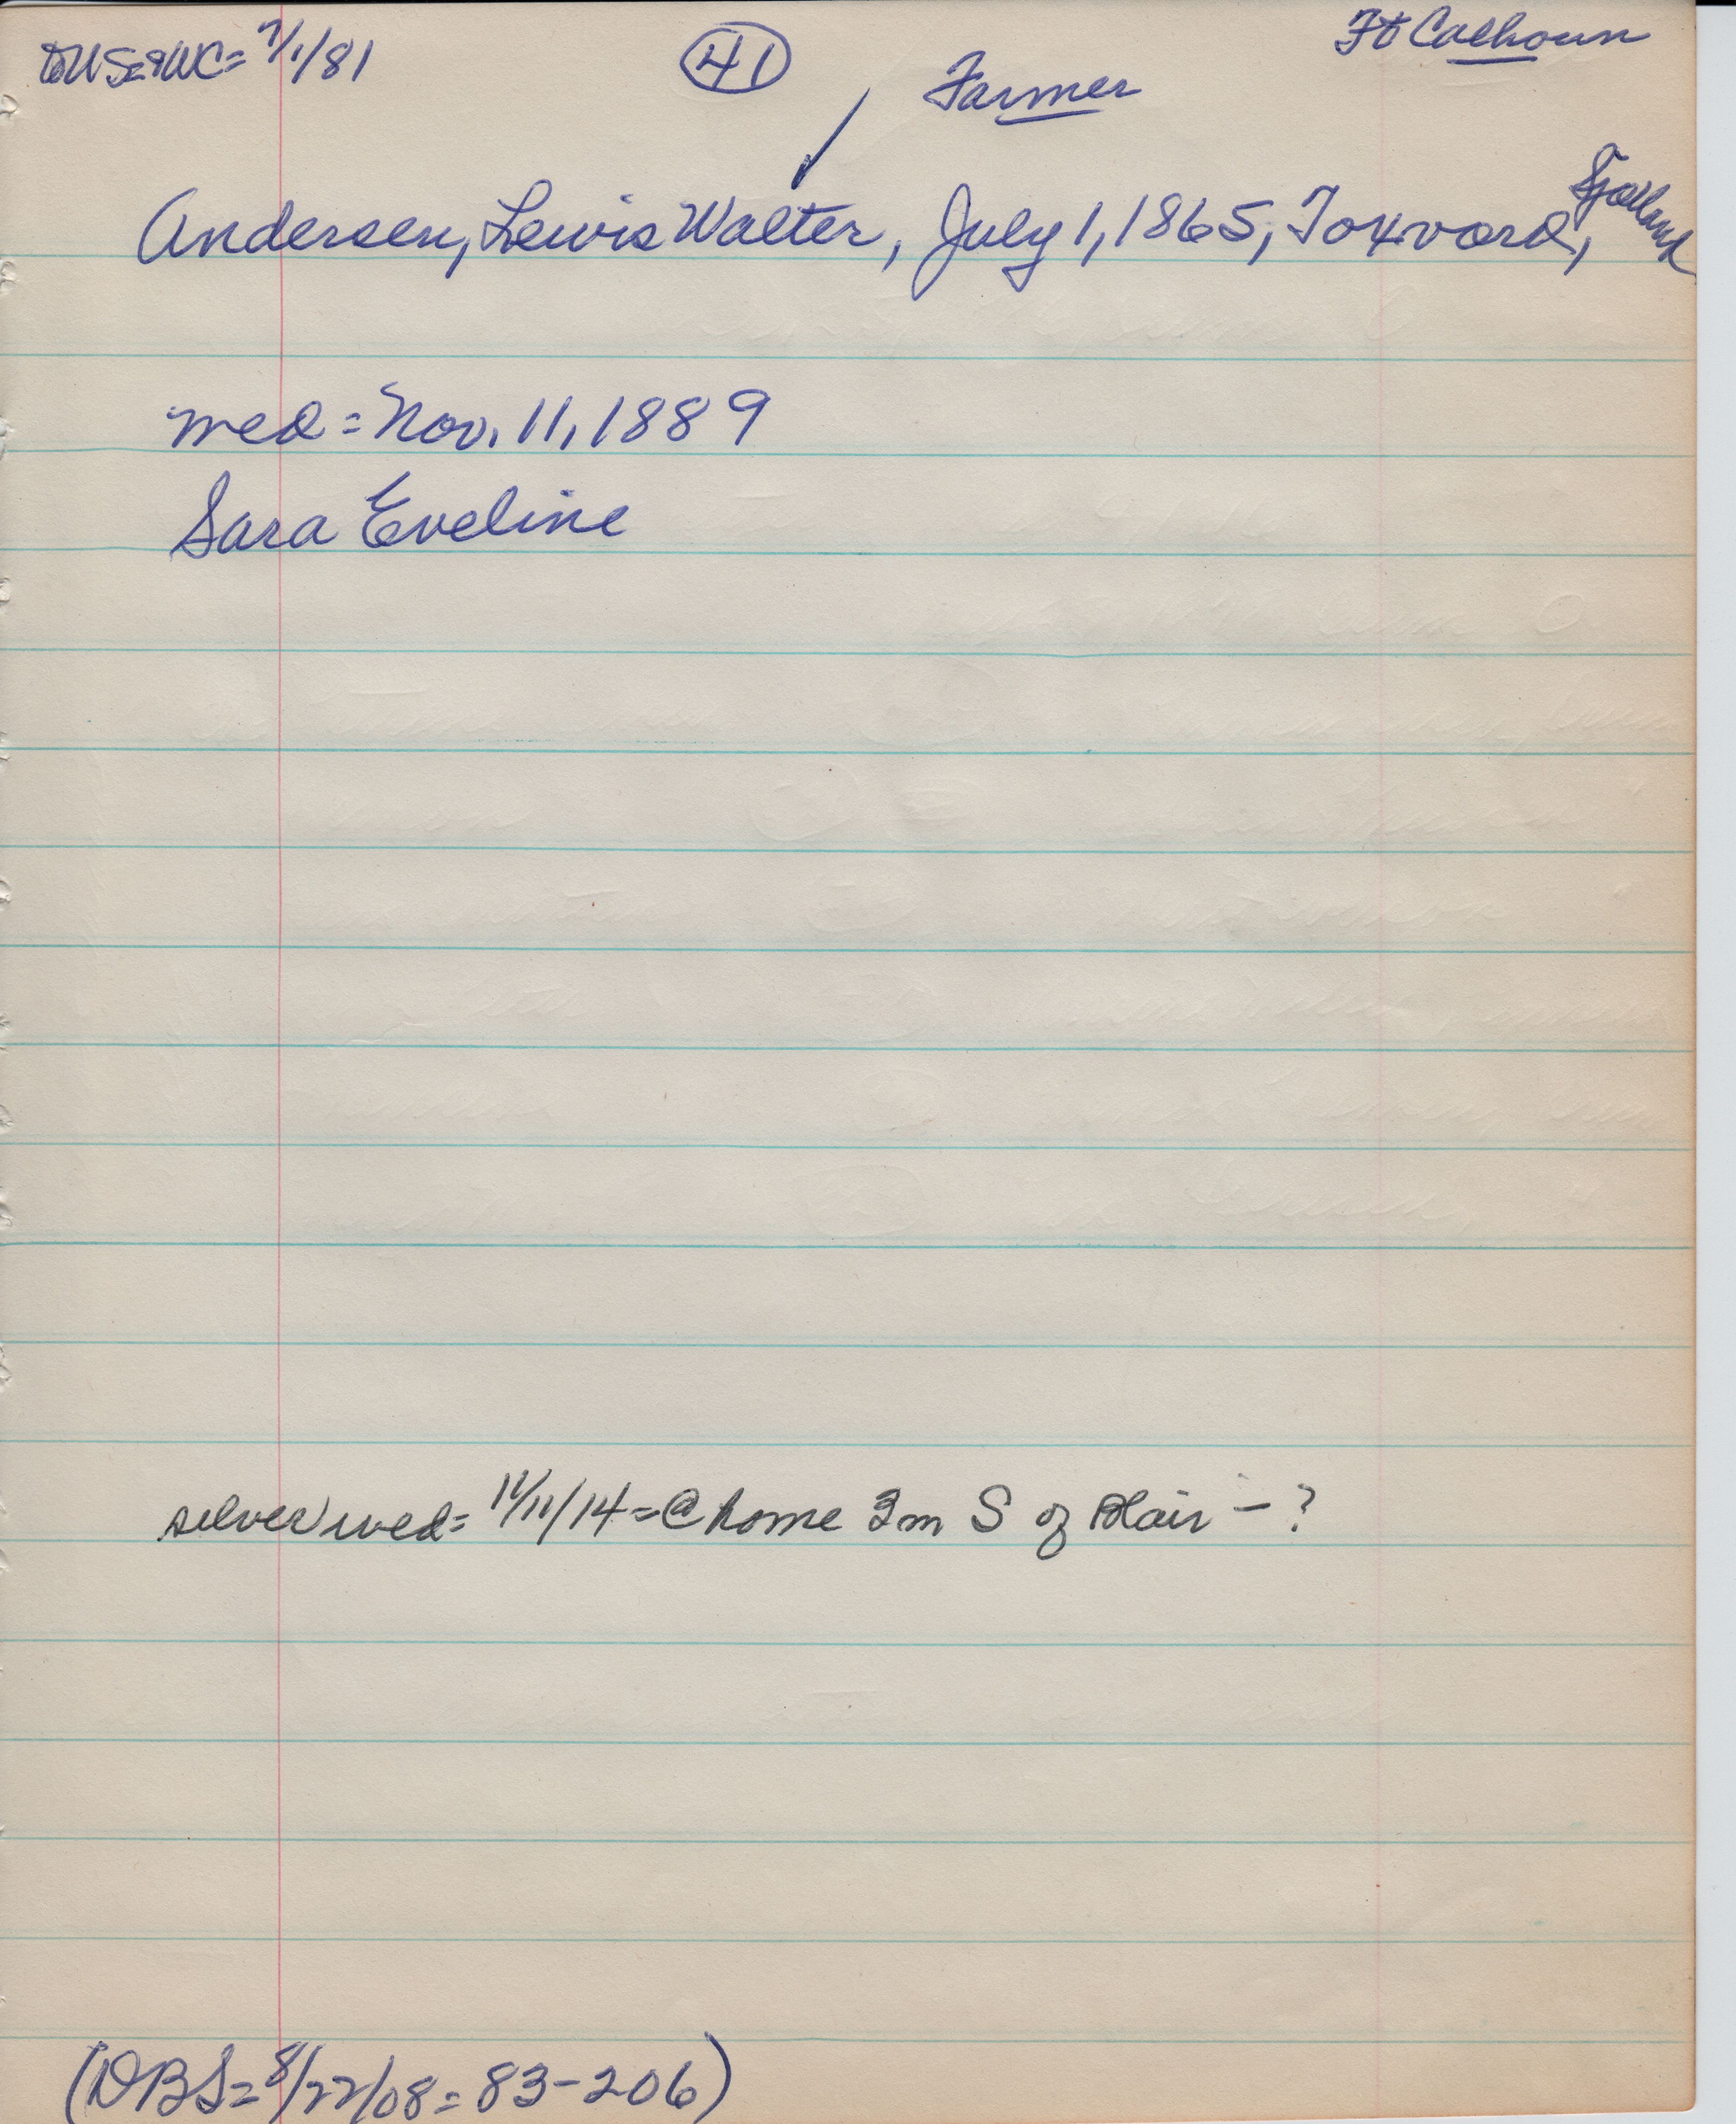 toUS=&WC= 7/1/81
41
Ft Calhoun
Farmer
Andersen, Lewis Walter, July 1, 1865, Toxvord, Sjælland
med = Nov. 11, 1889
Sara Eveline
silver wed = 11/11/14 = @ home 3m S of Blair – ?
(DBS = 8/22/08 = 83-206)